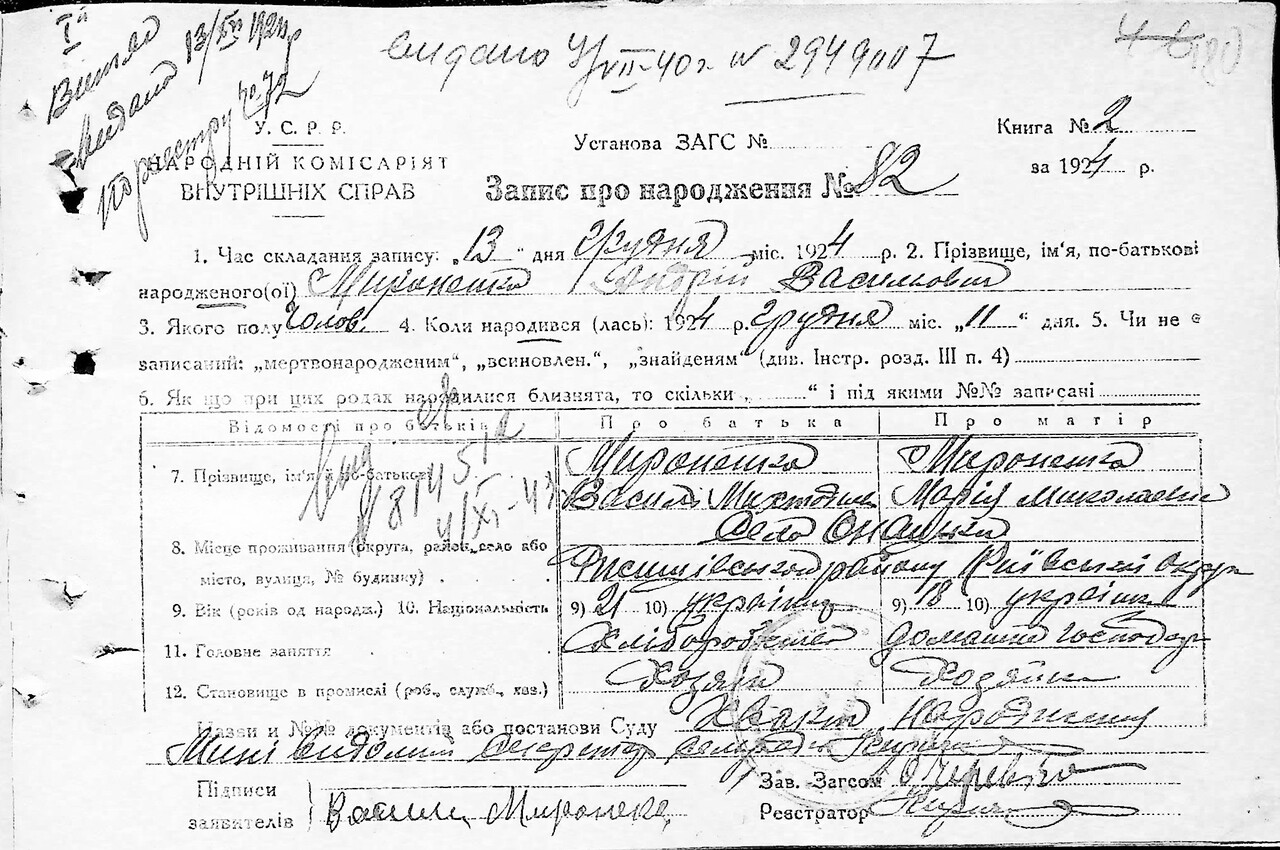 Іа
Витяг
видано 13/XII 1924 р
по реєстру № 72
видано 4/VII-40 г. № 2949007
У. С. Р. Р.
НАРОДНІЙ КОМІСАРІЯТ
ВНУТРІШНІХ СПРАВ
Установа ЗАГС №
Книга № 2
за 1924 р.
Запис про народження № 82
1. Час складання запису: „13“ дня Грудня міс. 1924 р. 2. Прізвище, ім'я, по-батькові
народженого(ої) Мироненко Андрій Василович
3. Якого полу Чолов. 4. Коли народився (лась): 1924 р. Грудня міс. „11“ дня. 5. Чи не є
записаний: „мертвонародженим“, „всиновлен.“, „знайденям“ (див. Інстр. розд. III п. 4)
6. Як що при цих родах народилися близнята, то скільки „ “ і під якими №№ записані
Відомості про батьків Про батька Про матір
7. Прізвище, ім'я й по-батькові Мироненко Мироненко
Василь Марія Миколаевна
Село
8. Місце проживання (округа, район, село або
місто, вулиця, № будинку) району Київської округи
9. Вік (років од народж.) 10. Національність 9) 21 10) українц 9) 18 10) українк
11. Головне заняття Хліборобство домашне господар
12. Становище в промислі (роб., служб., хаз.) Хозяїн Хозяйка
Назви и №№ документів або постанови Суду народження
Мині видомий Секретар
Підписи
заявителів Василь Мироненко
Зав. Загсом
Реєстратор